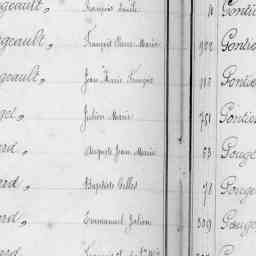 geault, François Emile 14 Gontie
geault, François Pierre Marie 982 Gontie
geault, Jean Marie François Gontie
get, Julien Marie 751 Gontie
ard, Auguste Jean Marie 53 Gouge
ard, Baptiste Gilles 71 Gouge
ard, Emmanuel Julien 309 Gouge
ard, Gouge